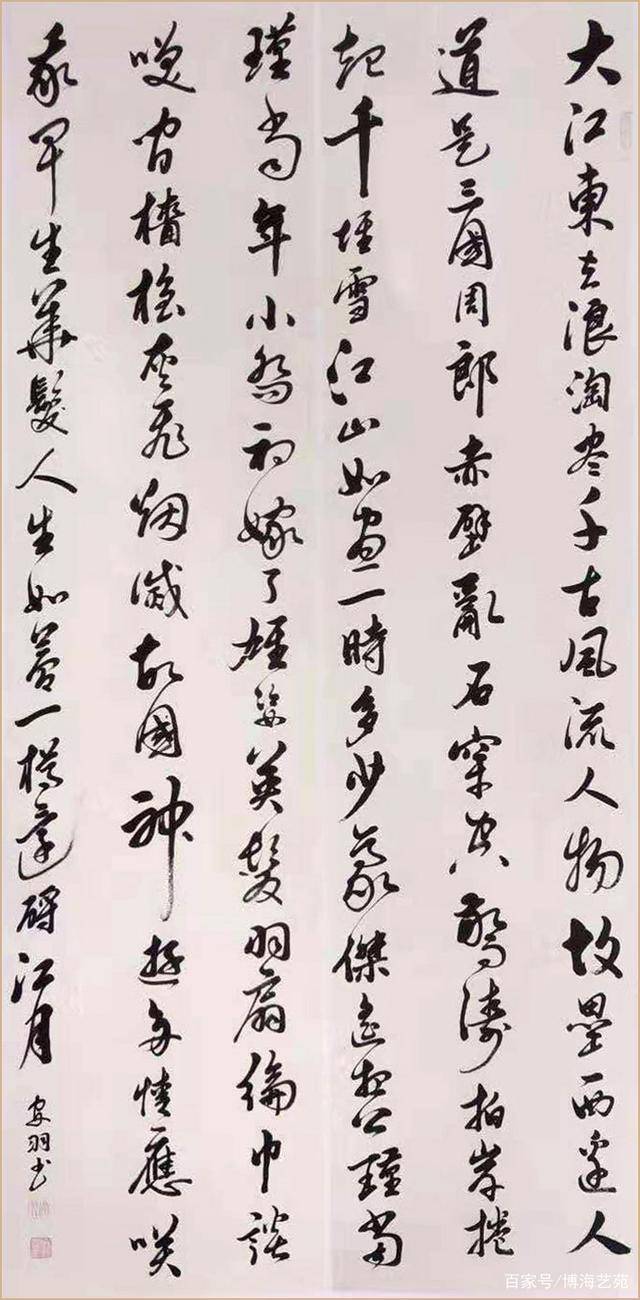 大江東去浪淘盡千古風流人物故壘西邊人
道是三國周郎赤壁亂石穿空驚濤拍岸捲
起千堆雪江山如畫一時多少豪傑遙想公瑾當
瑾當年小喬初嫁了雄姿英發羽扇綸巾談
笑間檣櫓灰飛烟滅故國神遊多情應笑
我早生華髮人生如夢一樽還酹江月
羽书
百家号/博海艺苑